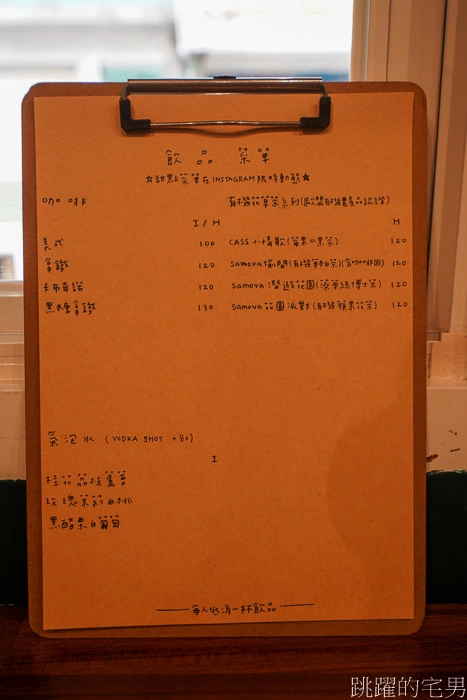 飲品 菜單
☆甜點菜單在INSTAGRAM限時動態★
咖啡
I / H
美式 100
拿鐵 120
卡布奇諾 120
黑糖拿鐵 130
有機花草茶系列(歐盟有機農產品認證)
H
CASS 小情歌(莓果水果茶) 120
Samova 偷閒(有機草本茶)(含咖啡因) 120
Samova 漂遊花園(菠草綠博士茶) 120
Samova 花園派對(有機蘋果花茶) 120
氣泡水 (VODKA SHOT +80)
I
桂花荔枝蘆薈
玫瑰茉莉白桃
黑醋栗白葡萄
每人低消一杯飲品
跳躍的宅男